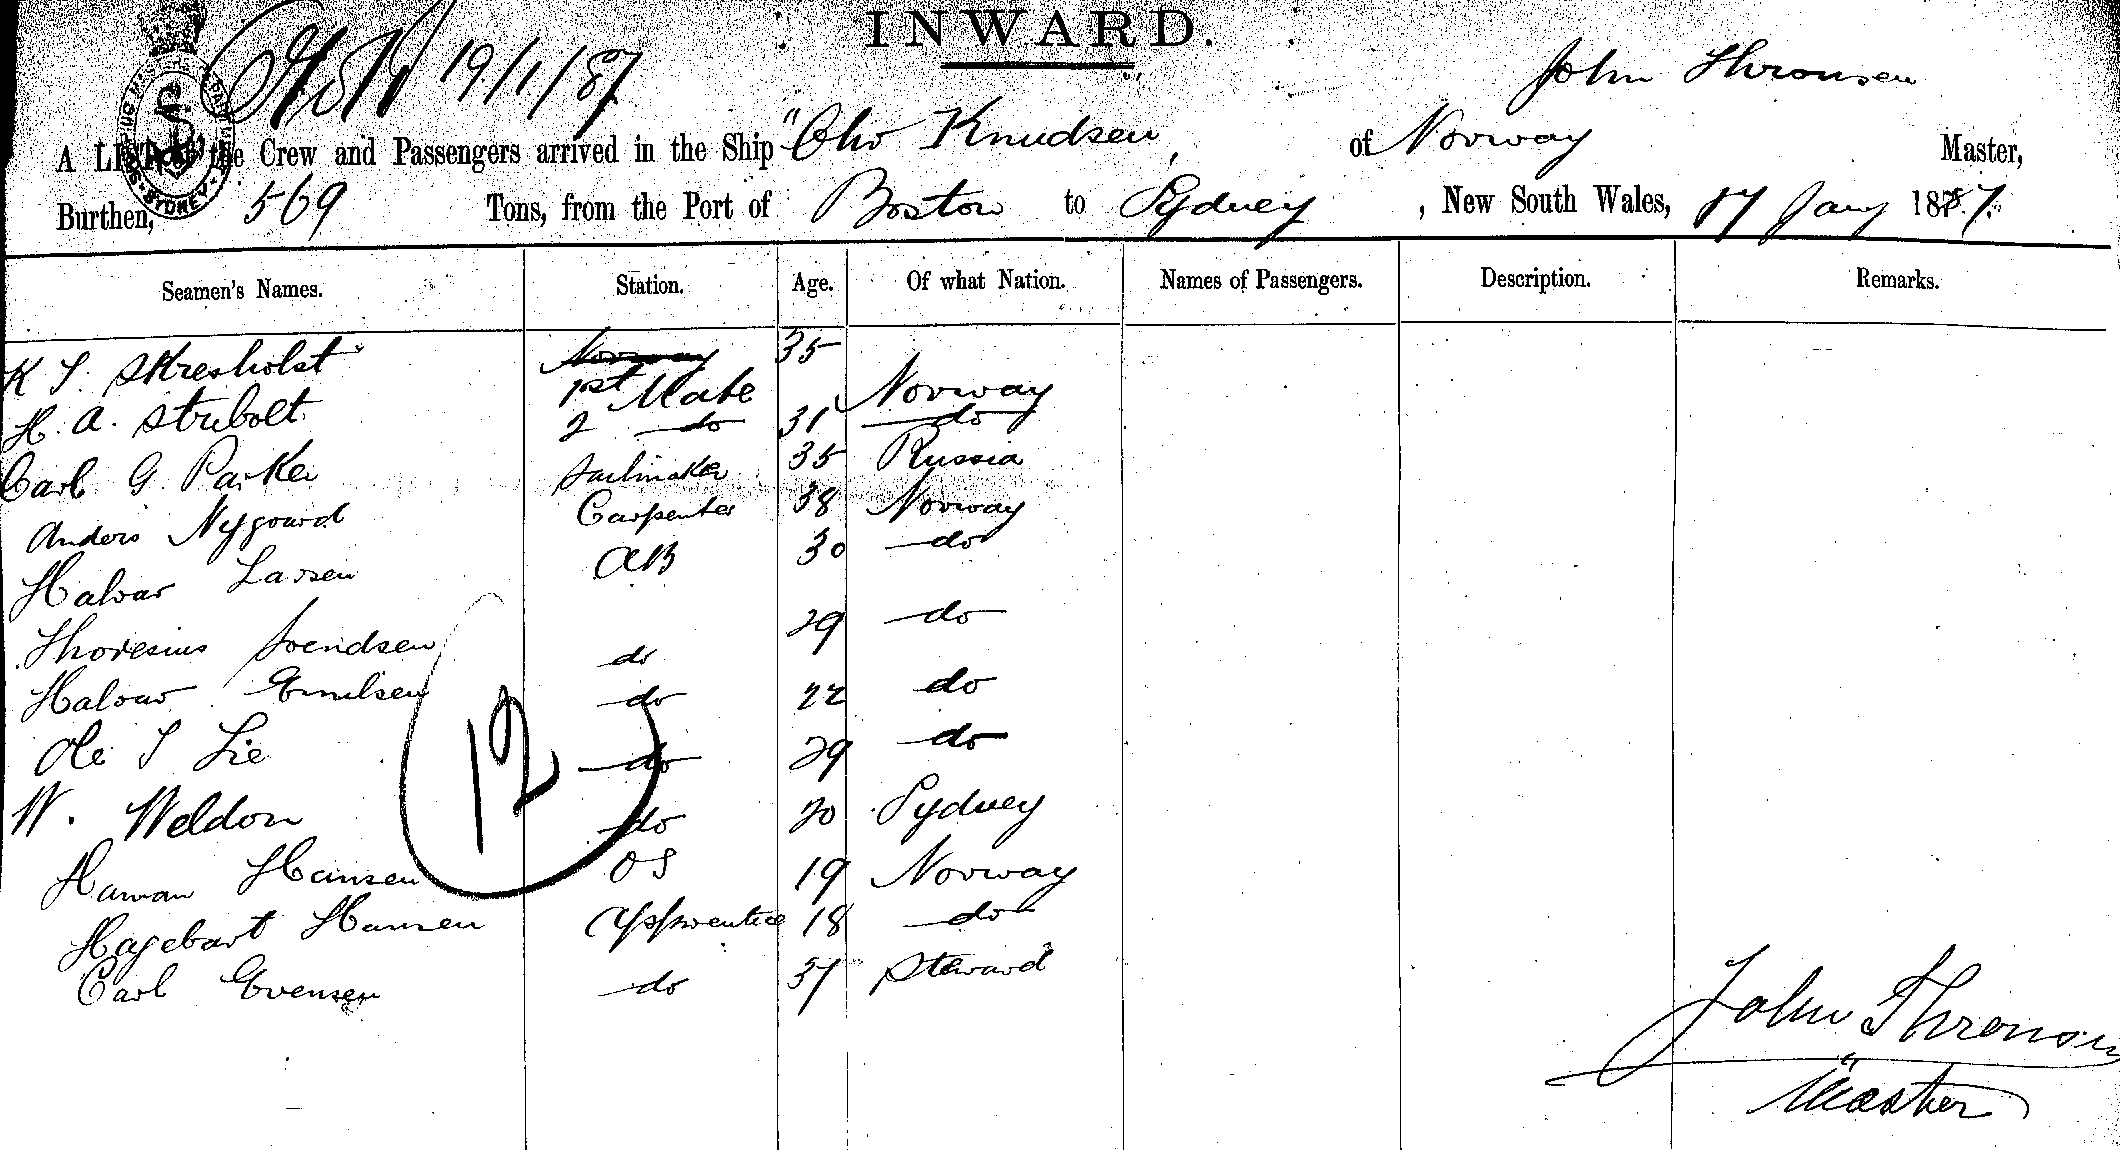 INWARD.
19/1/87
John Thronsen
A LIST of the Crew and Passengers arrived in the Ship "Olw Knudsen, of Norway Master,
Burthen, 569 Tons, from the Port of Boston to Sydney, New South Wales, 17 Jany 1887.
SYDNEY
Seamen's Names. Station. Age. Of what Nation. Names of Passengers. Description. Remarks.
K S. Skresholst Norway 35
1st Mate Norway
H. A. Strebolt 2 do 31 do
Carl G Parker Sailmaker 35 Russia
Anders Nygourd Carpenter 38 Norway
Halvar Larsen AB 30 do
Thoresius Svendsen do 29 do
Halvar Emilsen do 22 do
Ole S Lie do 29 do
12
W. Weldon do 20 Sydney
Haman Hansen OS 19 Norway
Hagebart Hansen Apprentice 18 do
Carl Evensen do 37 Steward
John Thronsen
Master